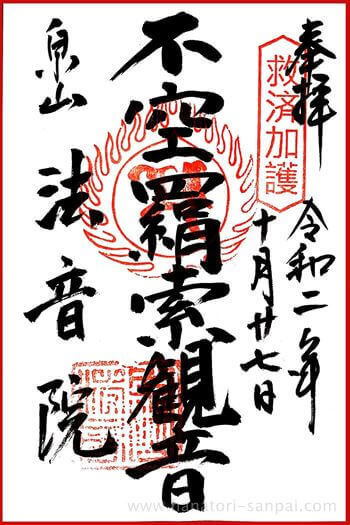 奉拝
救済加護
令和二年
十月廿七日
不空羂索観音
泉山
法音院
www.hanatori-sanpai.com